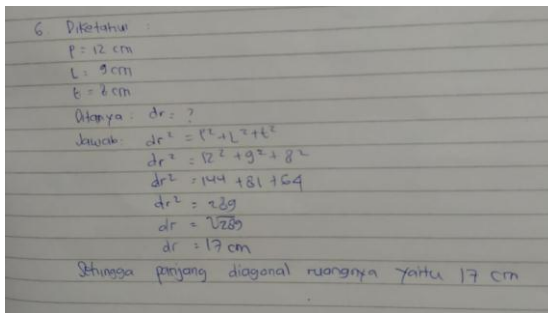 6. Diketahui :
P = 12 cm
L = 9 cm
t = 8 cm
Ditanya : dr = ?
Jawab: dr² = P² + L² + t²
dr² = 12² + 9² + 8²
dr² = 144 + 81 + 64
dr² = 289
dr = √289
dr = 17 cm
Sehingga panjang diagonal ruangnya yaitu 17 cm